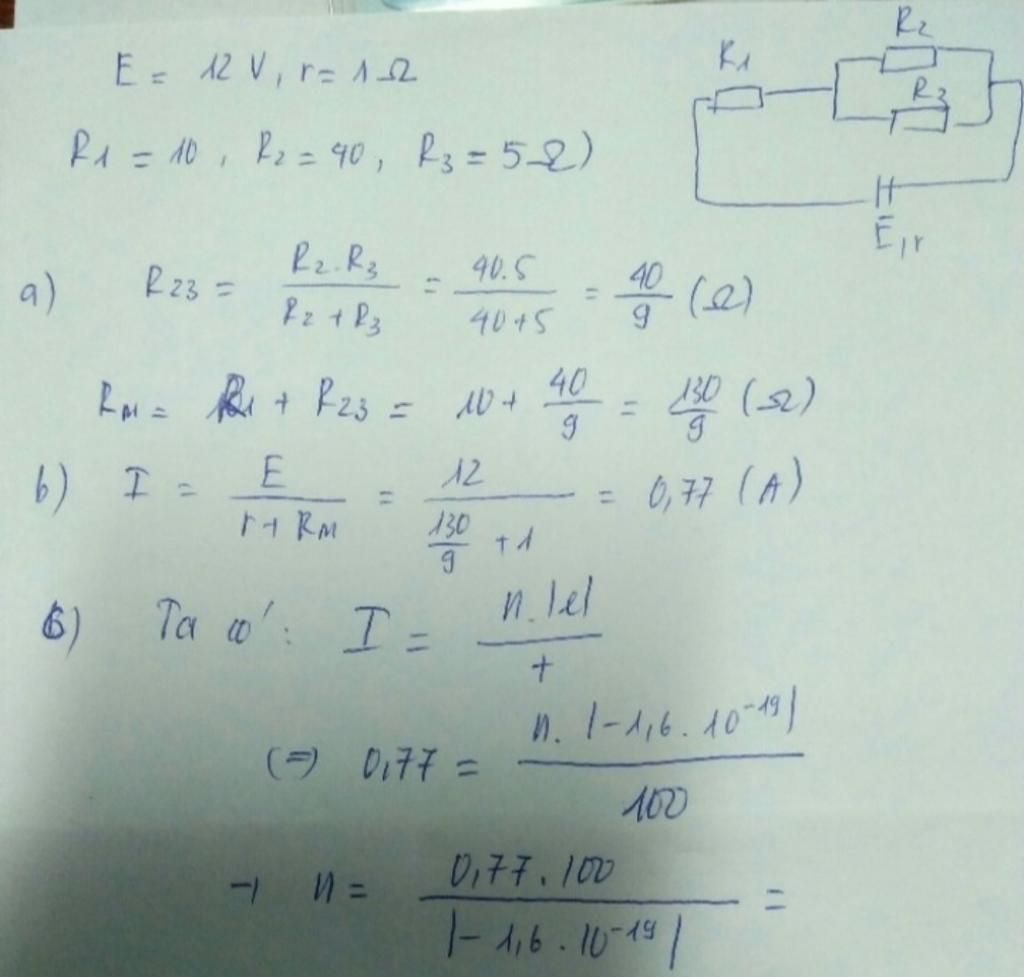 E = 12 V, r = 1 Ω
R1 = 10, R2 = 40, R3 = 5 Ω)
R1
R2
R3
E, r
a) R23 = R2.R3 / R2 + R3 = 40.5 / 40+5 = 40/9 (Ω)
RM = R1 + R23 = 10 + 40/9 = 130/9 (Ω)
b) I = E / r + RM = 12 / 130/9 + 1 = 0,77 (A)
c) Ta có: I = n.|e| / t
(=) 0,77 = n. |-1,6. 10^-19| / 100
→ n = 0,77. 100 / |-1,6. 10^-19| =